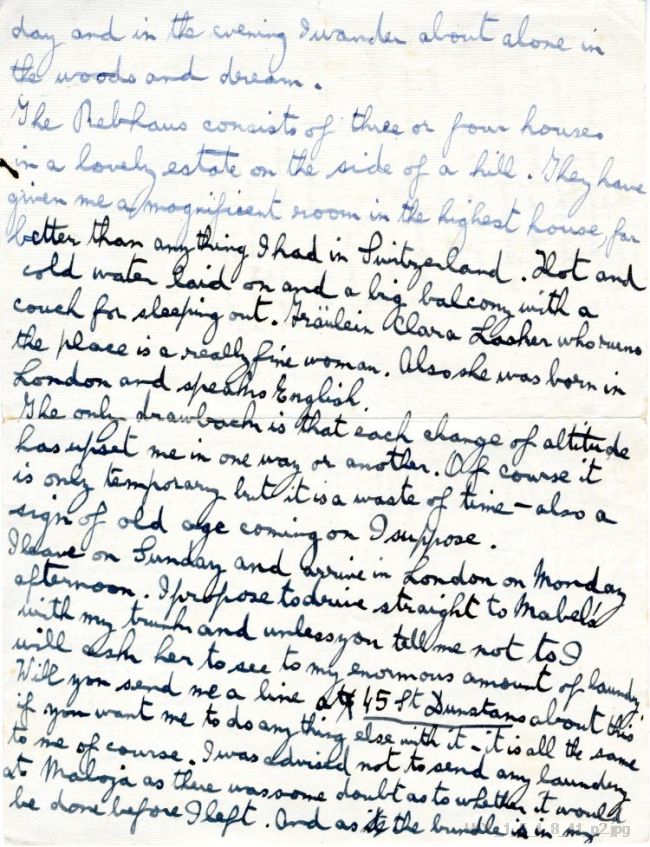 day and in the evening I wander about alone in
the woods and dream.
The Rebhaus consists of three or four houses
in a lovely estate on the side of a hill. They have
given me a magnificent room in the highest house, far
better than anything I had in Switzerland. Hot and
cold water laid on and a big balcony with a
couch for sleeping out. Fräulein Clara Lasher who runs
the place is a really fine woman. Also she was born in
London and speaks English.
The only drawback is that each change of altitude
has upset me in one way or another. Of course it
is only temporary but it is a waste of time – also a
sign of old age coming on I suppose.
I leave on Sunday and arrive in London on Monday
afternoon. I propose to drive straight to Mabel's
with my trunk and unless you tell me not to I
will ask her to see to my enormous amount of laundry.
Will you send me a line at 45 St Dunstans about this
if you want me to do anything else with it – it is all the same
to me of course. I was advised not to send any laundry
at Maloja as there was some doubt as to whether it would
be done before I left. And as the bundle is in my